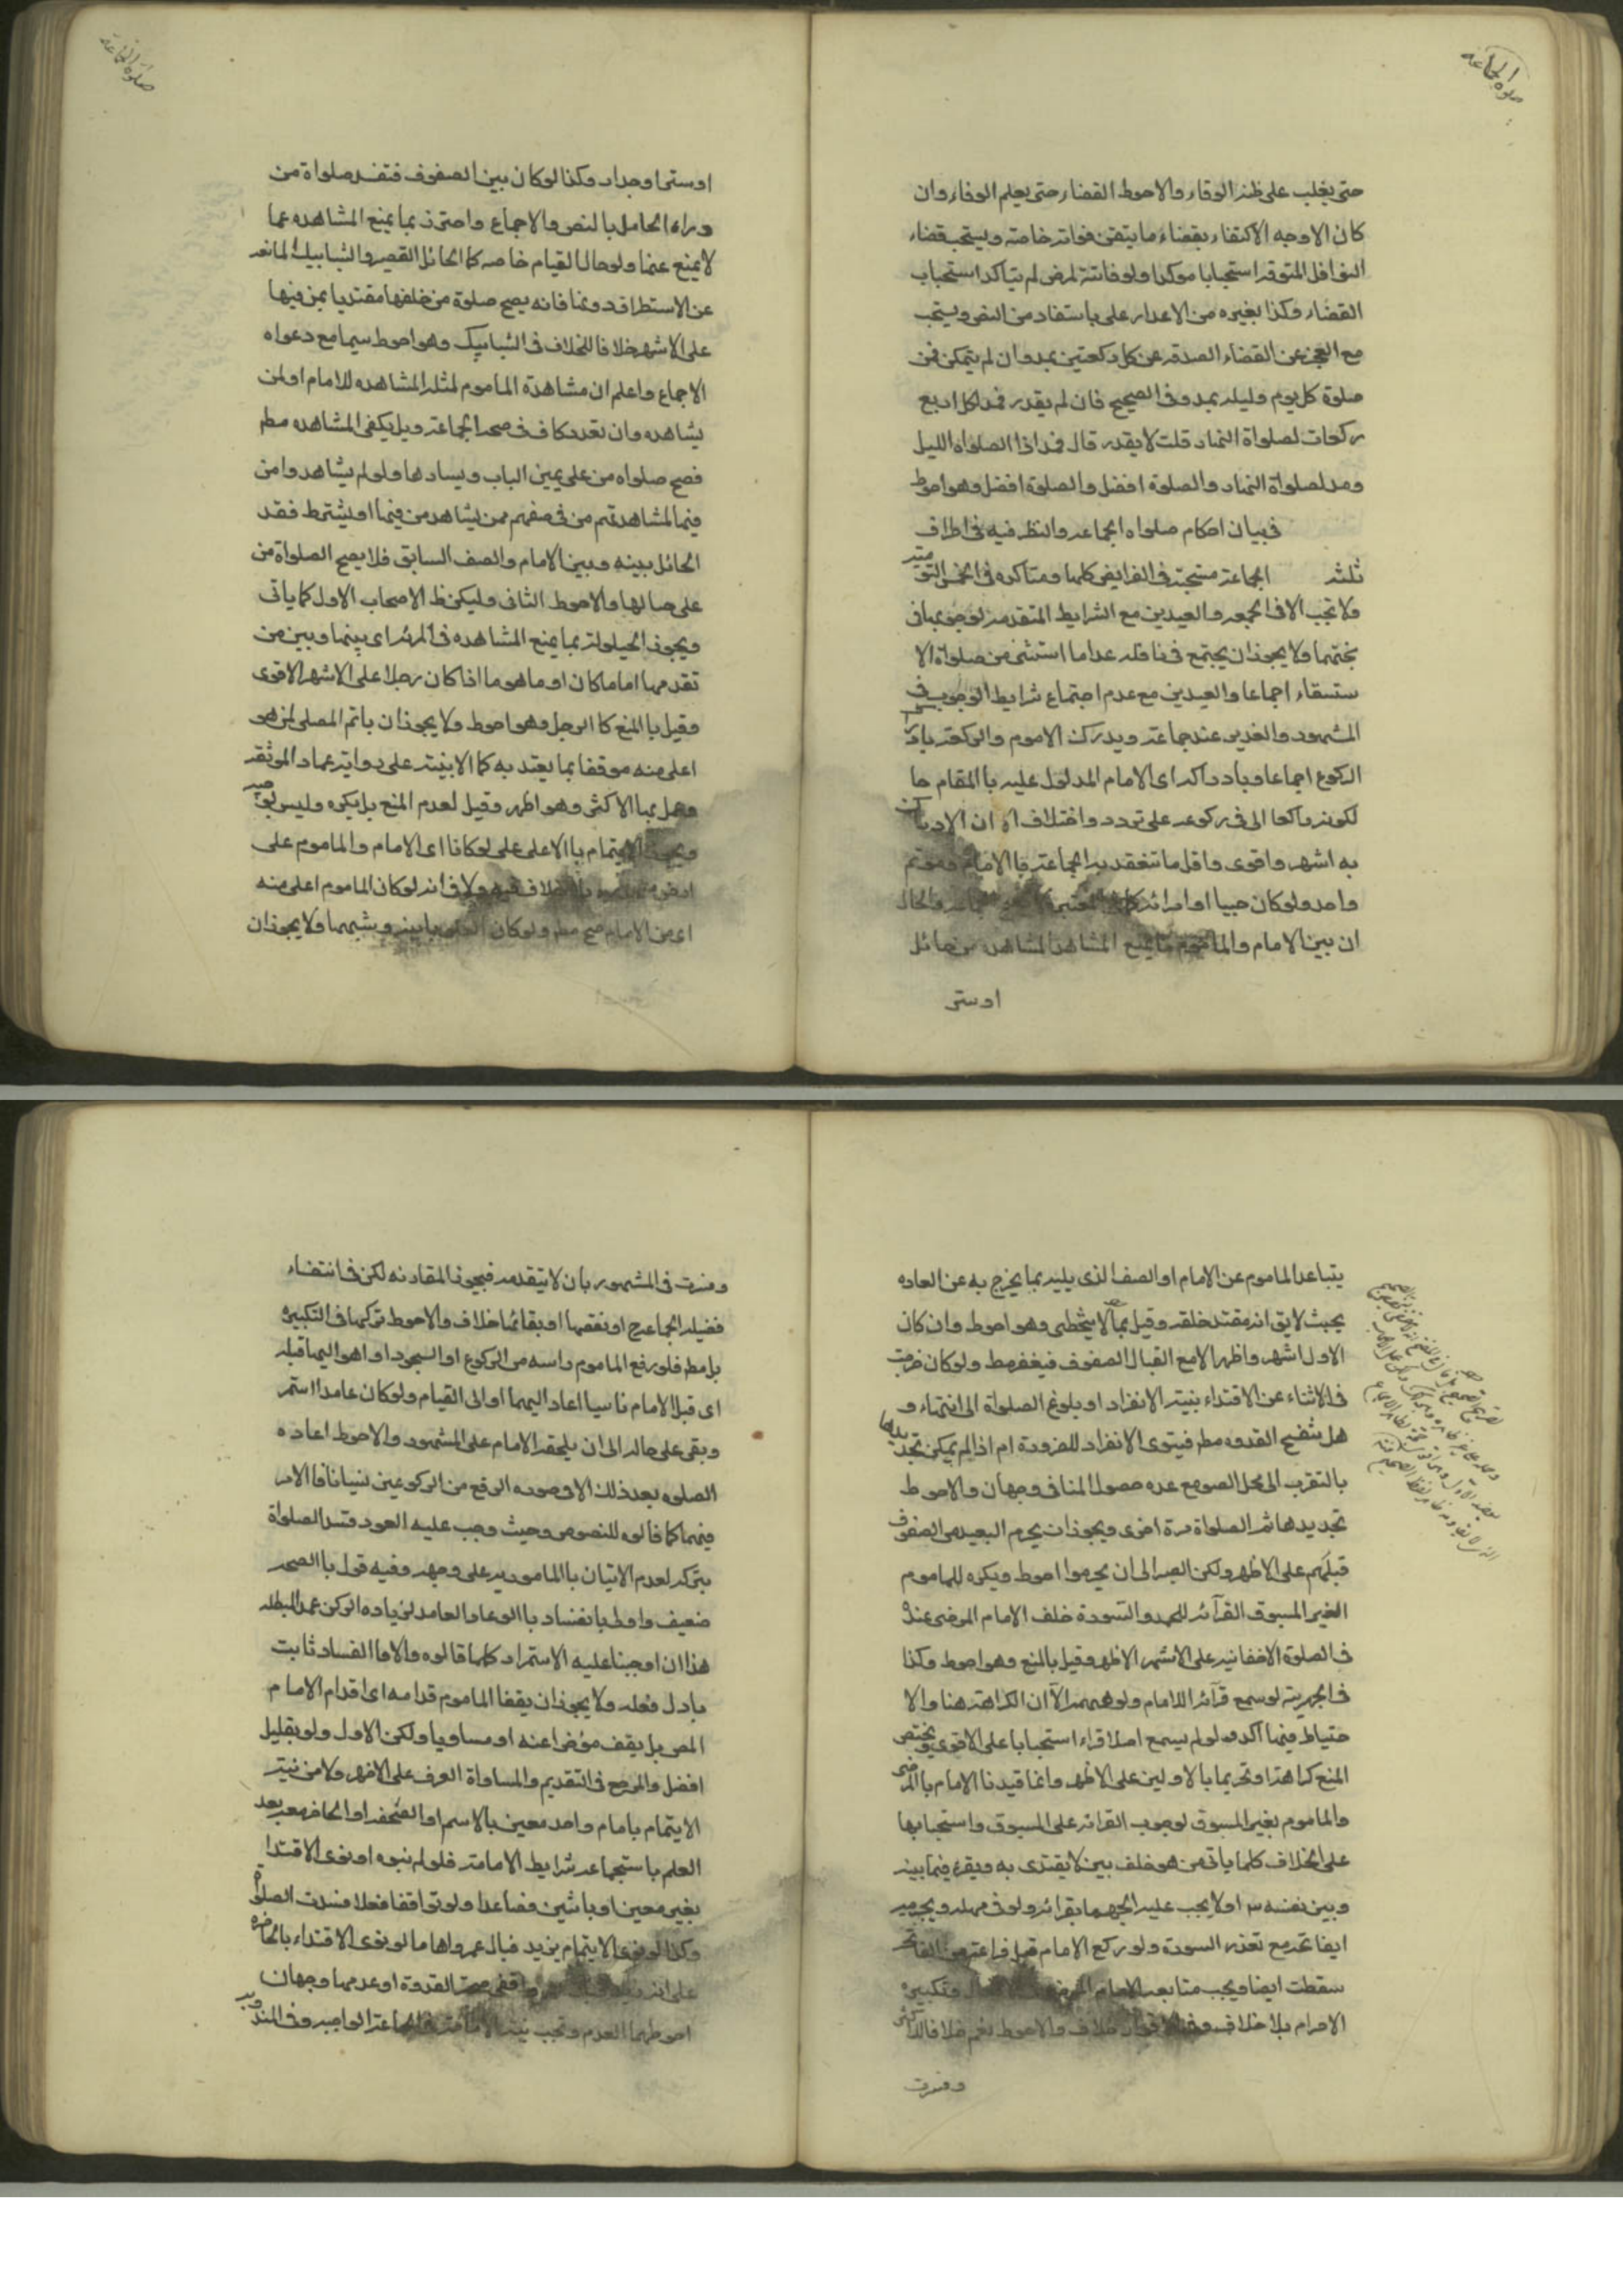 صلوة الجماعة
حتى يغلب على ظنه الوفاء والاحوط القضاء حتى يعلم الوفاء وان
كان الاوجه الاكتفاء بقضاء ما يتقن فواته خاصة ويستحب قضاء
النوافل المتوقته استحبابا موكدا ولو فاتته لمرض لم يتاكد استحباب
القضاء وكذا بغيره من الاعدار على ما ستفاد من النص ويستحب
مع العجز عن القضاء الصدقه عن كل ركعتين بمد وان لم يتمكن فمن
صلوة كل يوم وليله بمد وفى الصحيح فان لم يقدر فمد لكل اربع
ركعات لصلواة النهار قلت لا يقدر قال فمد اذا الصلواه الليل
ومد لصلواة النهار والصلوة افضل والصلوة افضل وهو احوط
فى بيان احكام صلواه الجماعه والنظر فيه فى اطراف
ثلثه الجماعة مستحبة فى الفرايض كلها ومتاكده فى الخمس
ولا تجب الا فى الجمعه والعيدين مع الشرايط المتقدمه لوجوبها فى
بحثهما ولا يجوز ان يجتمع فى نافله عدا ما استثنى من صلواة الا
ستسقاء اجماعا والعيدين مع عدم اجتماع شرايط الوجوب فى
المشهور والغدير عند جماعة ويدرك الاموم والركعة بادراك
الركوع اجماعا وبادراكه اى الامام المدلول عليه باالمقام حا
لكونه راكعا اى فى ركوعه على تردد واختلاف اه ان الادراك
به اشهر واقوى واقل ما تنعقد به الجماعة باالامام وموتم
واحد ولو كان صبيا او امرائه
ان بين الامام والماموم ما يمنع المشاهد المشاهده من حائل
او ستر
صلوة الجماعة
او ستر او جدار وكذا لو كان بين الصفوف فتفسد صلواة من
وراء الحامل بالنص والاجماع واحترز بما يمنع المشاهده عما
لا يمنع عنها ولو حال القيام خاصه كا الحائل القصير والشبابيك المانعه
عن الاستطراق دونها فانه يصح صلوة من خلفها مقتديا بمن فيها
على الاشهر خلافا للخلاف فى الشبابيك وهو احوط سيما مع دعواه
الاجماع واعلم ان مشاهدة الماموم لمثله المشاهده للامام او لمن
يشاهده وان تعدد كاف فى صحه الجماعة وبل يكفى المشاهده مط
فصح صلواه من على يمين الباب ويسارها ولو لم يشاهدوا من
فيها لمشاهدتهم من فى صفهم ممن يشاهد من فيها او يشترط فقد
الحائل بينه وبين الامام والصف السابق فلا يصح الصلواة من
على حيالها والاحوط الثانى وليكن ظ الاصحاب الاول كما ياتى
ويجوز الحيلولة بما يمنع المشاهده فى المرئه اى بينها وبين من
تقدمها اماما كان او ماموما اذا كان رجلا على الاشهر الاقوى
وقيل باالمنع كا الرجل وهو احوط ولا يجوز ان ياتم المصلى لمن هو
اعلى منه موقفا بما يعتد به كا الابنيه على رواية عمار الموثقه
وعمل بها الاكثر وهو اظهر وقيل لعدم المنع بل يكره وليس
ويجوز الايتمام باالاعلى على لو كانا اى الامام والماموم على
ارض منحدره بلا خلاف فيه ولا فى انه لو كان الماموم اعلى منه
اى من الامام صح مط ولو كان العلو بابنيه وشبهها ولا يجوز ان
يتباعد الماموم عن الامام او الصف الذى يليه بما يخرج به عن العاده
بحيث لا يق انه مقتد خلقه وقيل بما لا يتخطى وهو احوط وان كان
الاول اشهر واظهر الا مع اتصال الصفوف فيغفر مط ولو كان خرجت
فى الاثناء عن الاقتداء بنية الانفراد او بلوغ الصلواة الى انتهاء و
هل ينفسخ القدوه مط فينوى الانفراد للفرودة ام اذا لم يمكن تجديدها
بالتقرب الى محل الصوم مع عدم حصول المنافى وجهان والاحوط
تجديدها ثم الصلواة مرة اخرى ويجوز ان يحرم البعيد من الصفوف
قبلهم على الاظهر ولكن الصبر الى ان يحرموا احوط ويكره للماموم
الغير المسبوق القرآئه للحمد والسورة خلف الامام المرضى عنده
فى الصلوة الاخفاتيه على الاشهر الاظهر وقيل بالمنع وهو احوط وكذا
فى الجهرية لو سمع قرآئه الامام ولو همهمه الا ان الكراهة هنا والا
حتياط فيها آكد ولو لم يسمع اصلا قراء استحبابا على الاقوى ويختص
المنع كراهة او تحريما بالاولين على الاظهر وانما قيدنا الامام باالمرضى
والماموم بغير المسبوق لوجوب القرائه على المسبوق واستحبابها
على الخلاف كلما ياتى من هو خلف بين لا يقتدى به ويقرء فيما بينه
وبين نفسه سرا ولا يجب عليه الجهر بقرائه ولو فى جهريه ويجزيه
ايضا تحه مع تعذر السورة ولو ركع الامام قبل فراغه من الفاتحه
سقطت ايضا ويجب متابعه الامام المرضى وتكبيره
الاحرام بلا خلاف وفى الاقوال خلاف والاحوط نعم خلافا للاكثر
وفسرت
وفسرت فى المشهور بان لا يتقدمه فيجوز المقارنه لكن فى انتفاء
فضيله الجماعه ح او نقصها او بقائها خلاف والاحوط تركها فى التكبيره
بل مط فلو رفع الماموم راسه من الركوع او السجود او اهوا اليهما قبله
اى قبل الامام ناسيا اعاد اليهما او الى القيام ولو كان عامدا استمر
وبقى على حاله الى ان يلحقه الامام على المشهور والاحوط اعاده
الصلوه بعد ذلك الا فى صوره الرفع من الركوعين نسيانا فا الامر
فيهما كما قالوه للنصوص وحيث وجب عليه العود فتسد الصلواة
بتركه لعدم الاتيان باالمامور به على وجهه وفيه قول باالصحه
ضعيف واولى بانفساد باالوعاد العامد لزياده الركن عمدا المبطله
هذا ان اوجبنا عليه الاستمرار كلما قالوه والا فاالفساد ثابت
باول فعله ولا يجوز ان يقفا الماموم قدامه اى اقدام الامام
المص بل يقف مؤخرا عنه او مساويا ولكن الاول ولو بقليل
افضل والمرجع فى التقديم والمساواة العرف على الاظهر ولا من نية
الايتمام بامام واحد معين بالاسم او الصفه او الحاضر معه بعد
العلم باستجماعه شرايط الامامة فلو لم ينوه او نوى الاقتدا
بغير معين او باثنين فصاعدا ولو توافقا فعلا فسدت الصلوة
وكذا لو نوى الايتمام بزيد فبان عمروا اما لو نوى الاقتداء بالحاضر
على انه زيد فبان عمروا ففى صحة القدوة او عدمها وجهان
احوطهما العدم وتجب نية الامامة فى الجماعة الواجبه وفى المندوبه